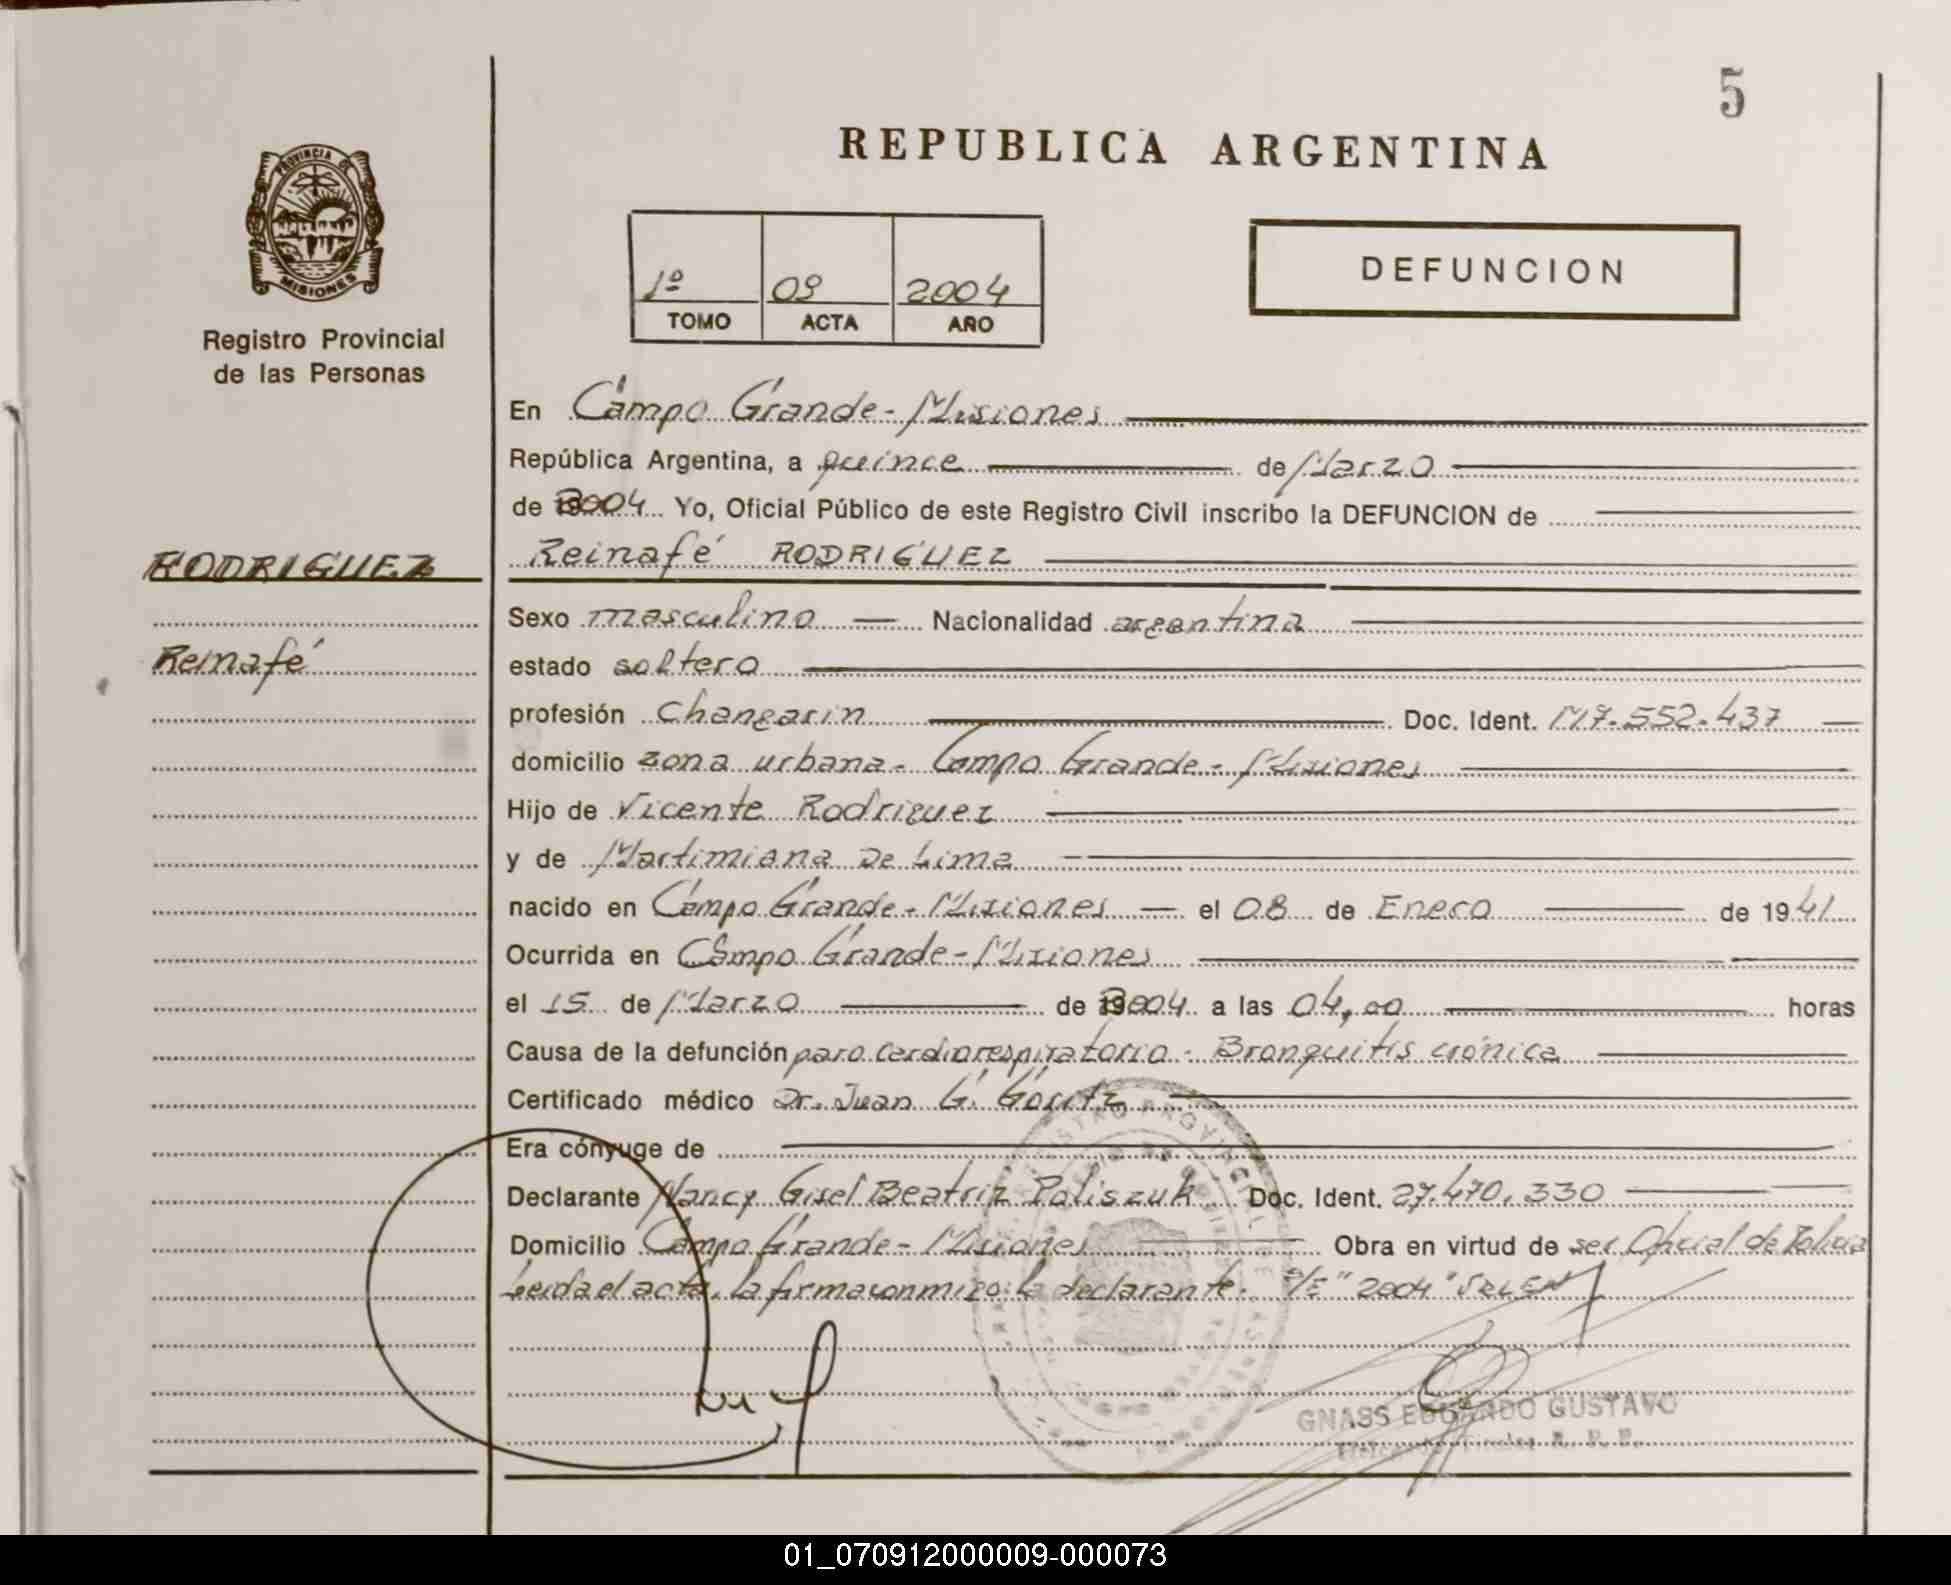 5
REPUBLICA ARGENTINA
PROVINCIA DE
MISIONES
Registro Provincial
de las Personas
1º 09 2004
TOMO ACTA AÑO
DEFUNCION
En Campo Grande - Misiones
República Argentina, a quince de Marzo
de 2004 Yo, Oficial Público de este Registro Civil inscribo la DEFUNCION de
RODRIGUEZ
Reinafé RODRIGUEZ
Sexo masculino Nacionalidad argentina
Reinafé
estado soltero
profesión Changarin Doc. Ident. M7.552.437
domicilio zona urbana - Campo Grande - Misiones
Hijo de Vicente Rodriguez
y de Martimiana De Lima
nacido en Campo Grande - Misiones el 08 de Enero de 1941
Ocurrida en Campo Grande - Misiones
el 15 de Marzo de 2004 a las 04,00 horas
Causa de la defunción paro cardiorespiratorio - Bronquitis crónica
Certificado médico Dr. Juan G. Goritz
Era cónyuge de
Declarante Nancy Gisel Beatriz Paliszuk Doc. Ident. 27.470.330
Domicilio Campo Grande - Misiones Obra en virtud de ser Oficial de Policia
Leida el acta, la firma conmigo: la declarante. S/E "2004" VALEN
REGISTRO PROVINCIAL DE LAS PERSONAS
GNASS EDUARDO GUSTAVO
R. P. P.
01_070912000009-000073